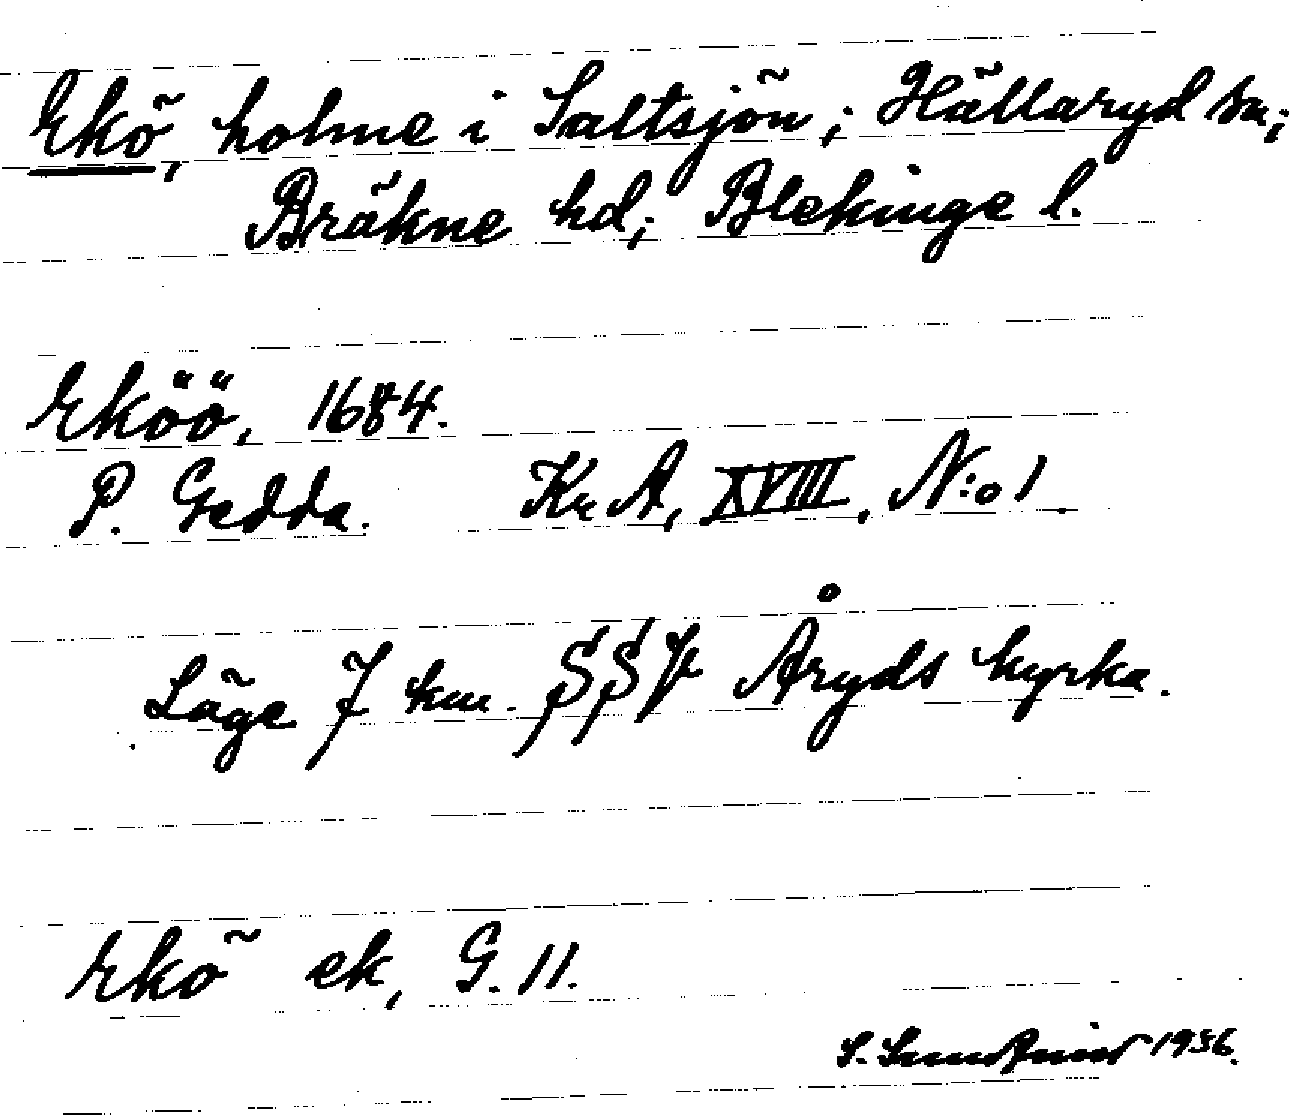 Ekö, holme i Saltsjön; Hällaryd sn;
Bräkne hd; Blekinge l.
Eköö, 1684.
P. Gedda. Kr. A, XVIII, N:o 1.
Läge 7 km. SSV Åryds kyrka.
Ekö ek, G. 11.
S. 1936.